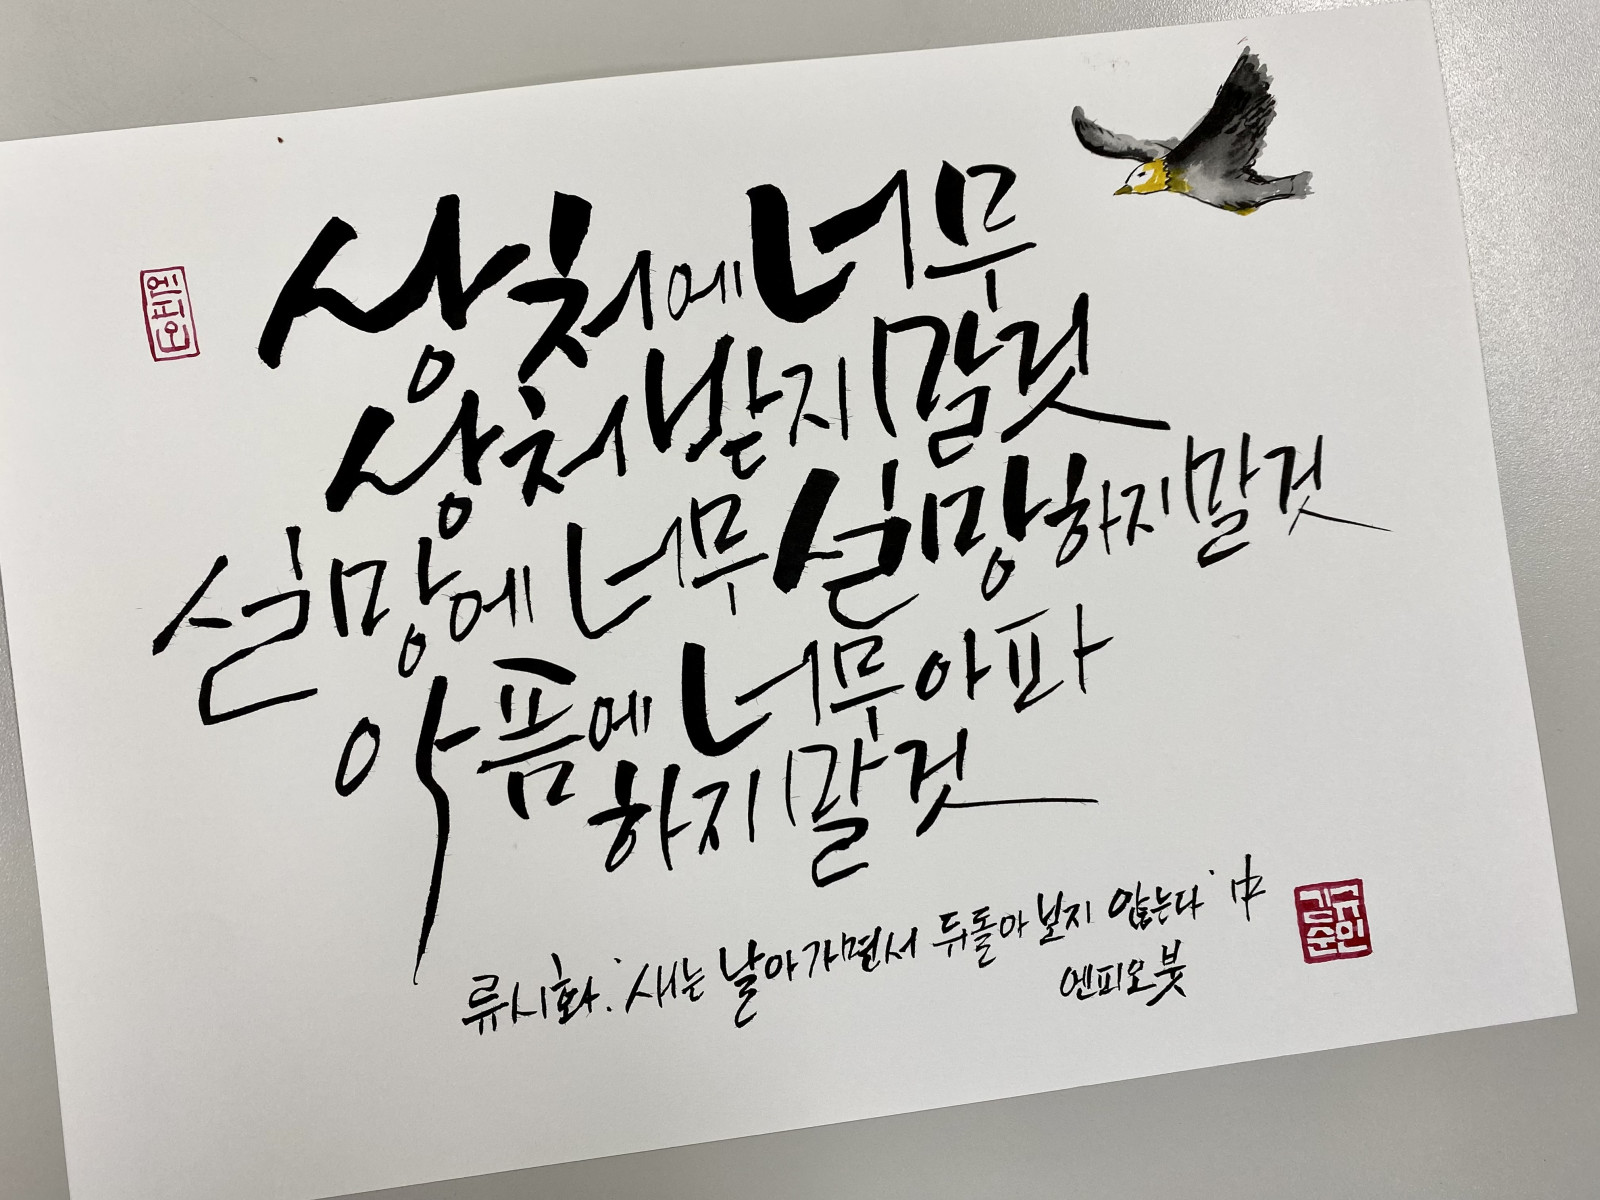 상처에 너무
상처받지 말 것
실망에 너무 실망하지 말 것
아픔에 너무 아파
하지 말 것
류시화. '새는 날아가면서 뒤돌아보지 않는다' 中
엔피오붓